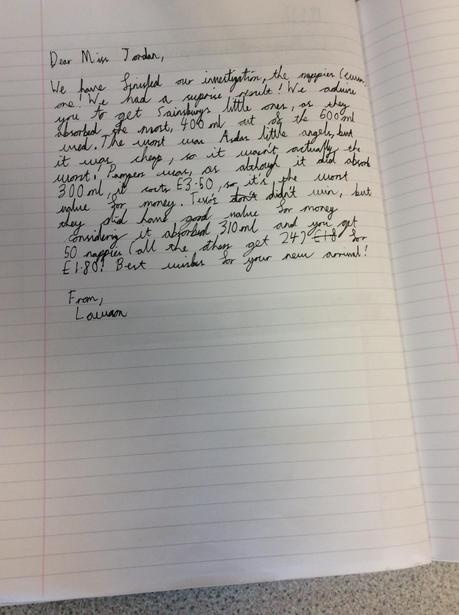 Dear Miss Jordan,
We have finished our investigation, the nappies
one! We had a suprise result! We advise
you to get Sainsburys little ones, as they
absorbed the most, 400ml out of the 500ml
used. The worst was Asdas little angels, but
it was cheap, so it wasn't actually the
worst. Pampers was, as although it did absorb
300ml, it costs £3.50, so it's the worst
value for money. Tesco didn't win, but
they did have good value for money
considering it absorbed 310ml and you get
50 nappies (all the others get 24) £1.8 for
£1.80! Best wishes for your new arrival!
From,